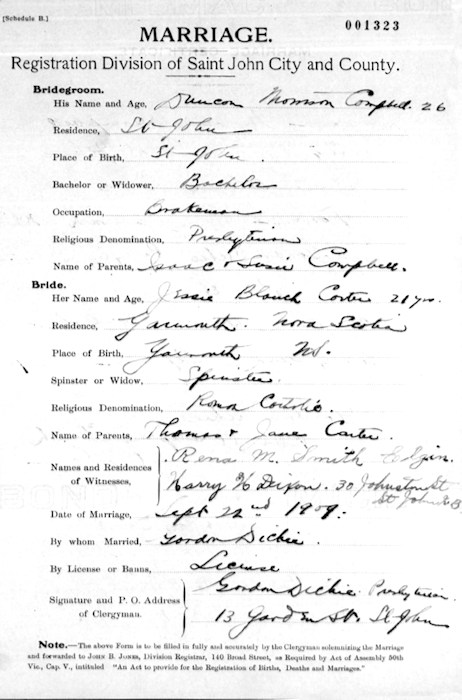 [Schedule B.]
001323
MARRIAGE.
Registration Division of Saint John City and County.
Bridegroom.
His Name and Age, Duncan Morrison Campbell. 26
Residence, St John
Place of Birth, St John.
Bachelor or Widower, Bachelor
Occupation, Brakeman
Religious Denomination, Presbyterian
Name of Parents, Isaac & Susie Campbell.
Bride.
Her Name and Age, Jessie Blanch Carter 21 yrs.
Residence, Yarmouth. Nova Scotia
Place of Birth, Yarmouth NS.
Spinster or Widow, Spinster.
Religious Denomination, Roman Catholic.
Name of Parents, Thomas & Jane Carter.
Names and Residences of Witnesses, Rena M. Smith Elgin.
Harry H Dixon. 30 Johnston St
St John N.B.
Date of Marriage, Sept 22nd 1909.
By whom Married, Gordon Dickie.
By License or Banns, License
Signature and P. O. Address of Clergyman. Gordon Dickie Presbyterian.
13 Garden St. St John
Note.—The above Form is to be filled in fully and accurately by the Clergyman solemnizing the Marriage
and forwarded to JOHN B. JONES, Division Registrar, 140 Broad Street, as Required by Act of Assembly 50th
Vic., Cap. V., intituled "An Act to provide for the Registration of Births, Deaths and Marriages."